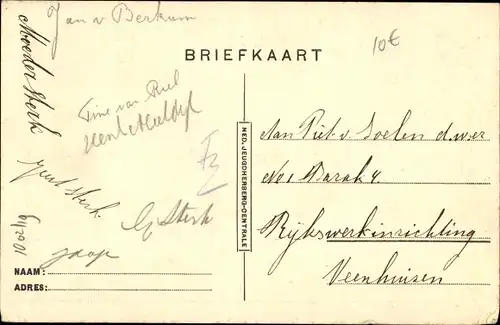 Jan v Berkum
10€
BRIEFKAART
Moeder Sterk
Tine van Riel
Henk Mulder
NED. JEUGDHERBERG-CENTRALE
Aan Piet v. Soelen d.w.er
No 1 Barak 4.
Rijkswerkinrichting
Veenhuizen
Sterk.
Sterk
Jaap
NAAM:
ADRES: